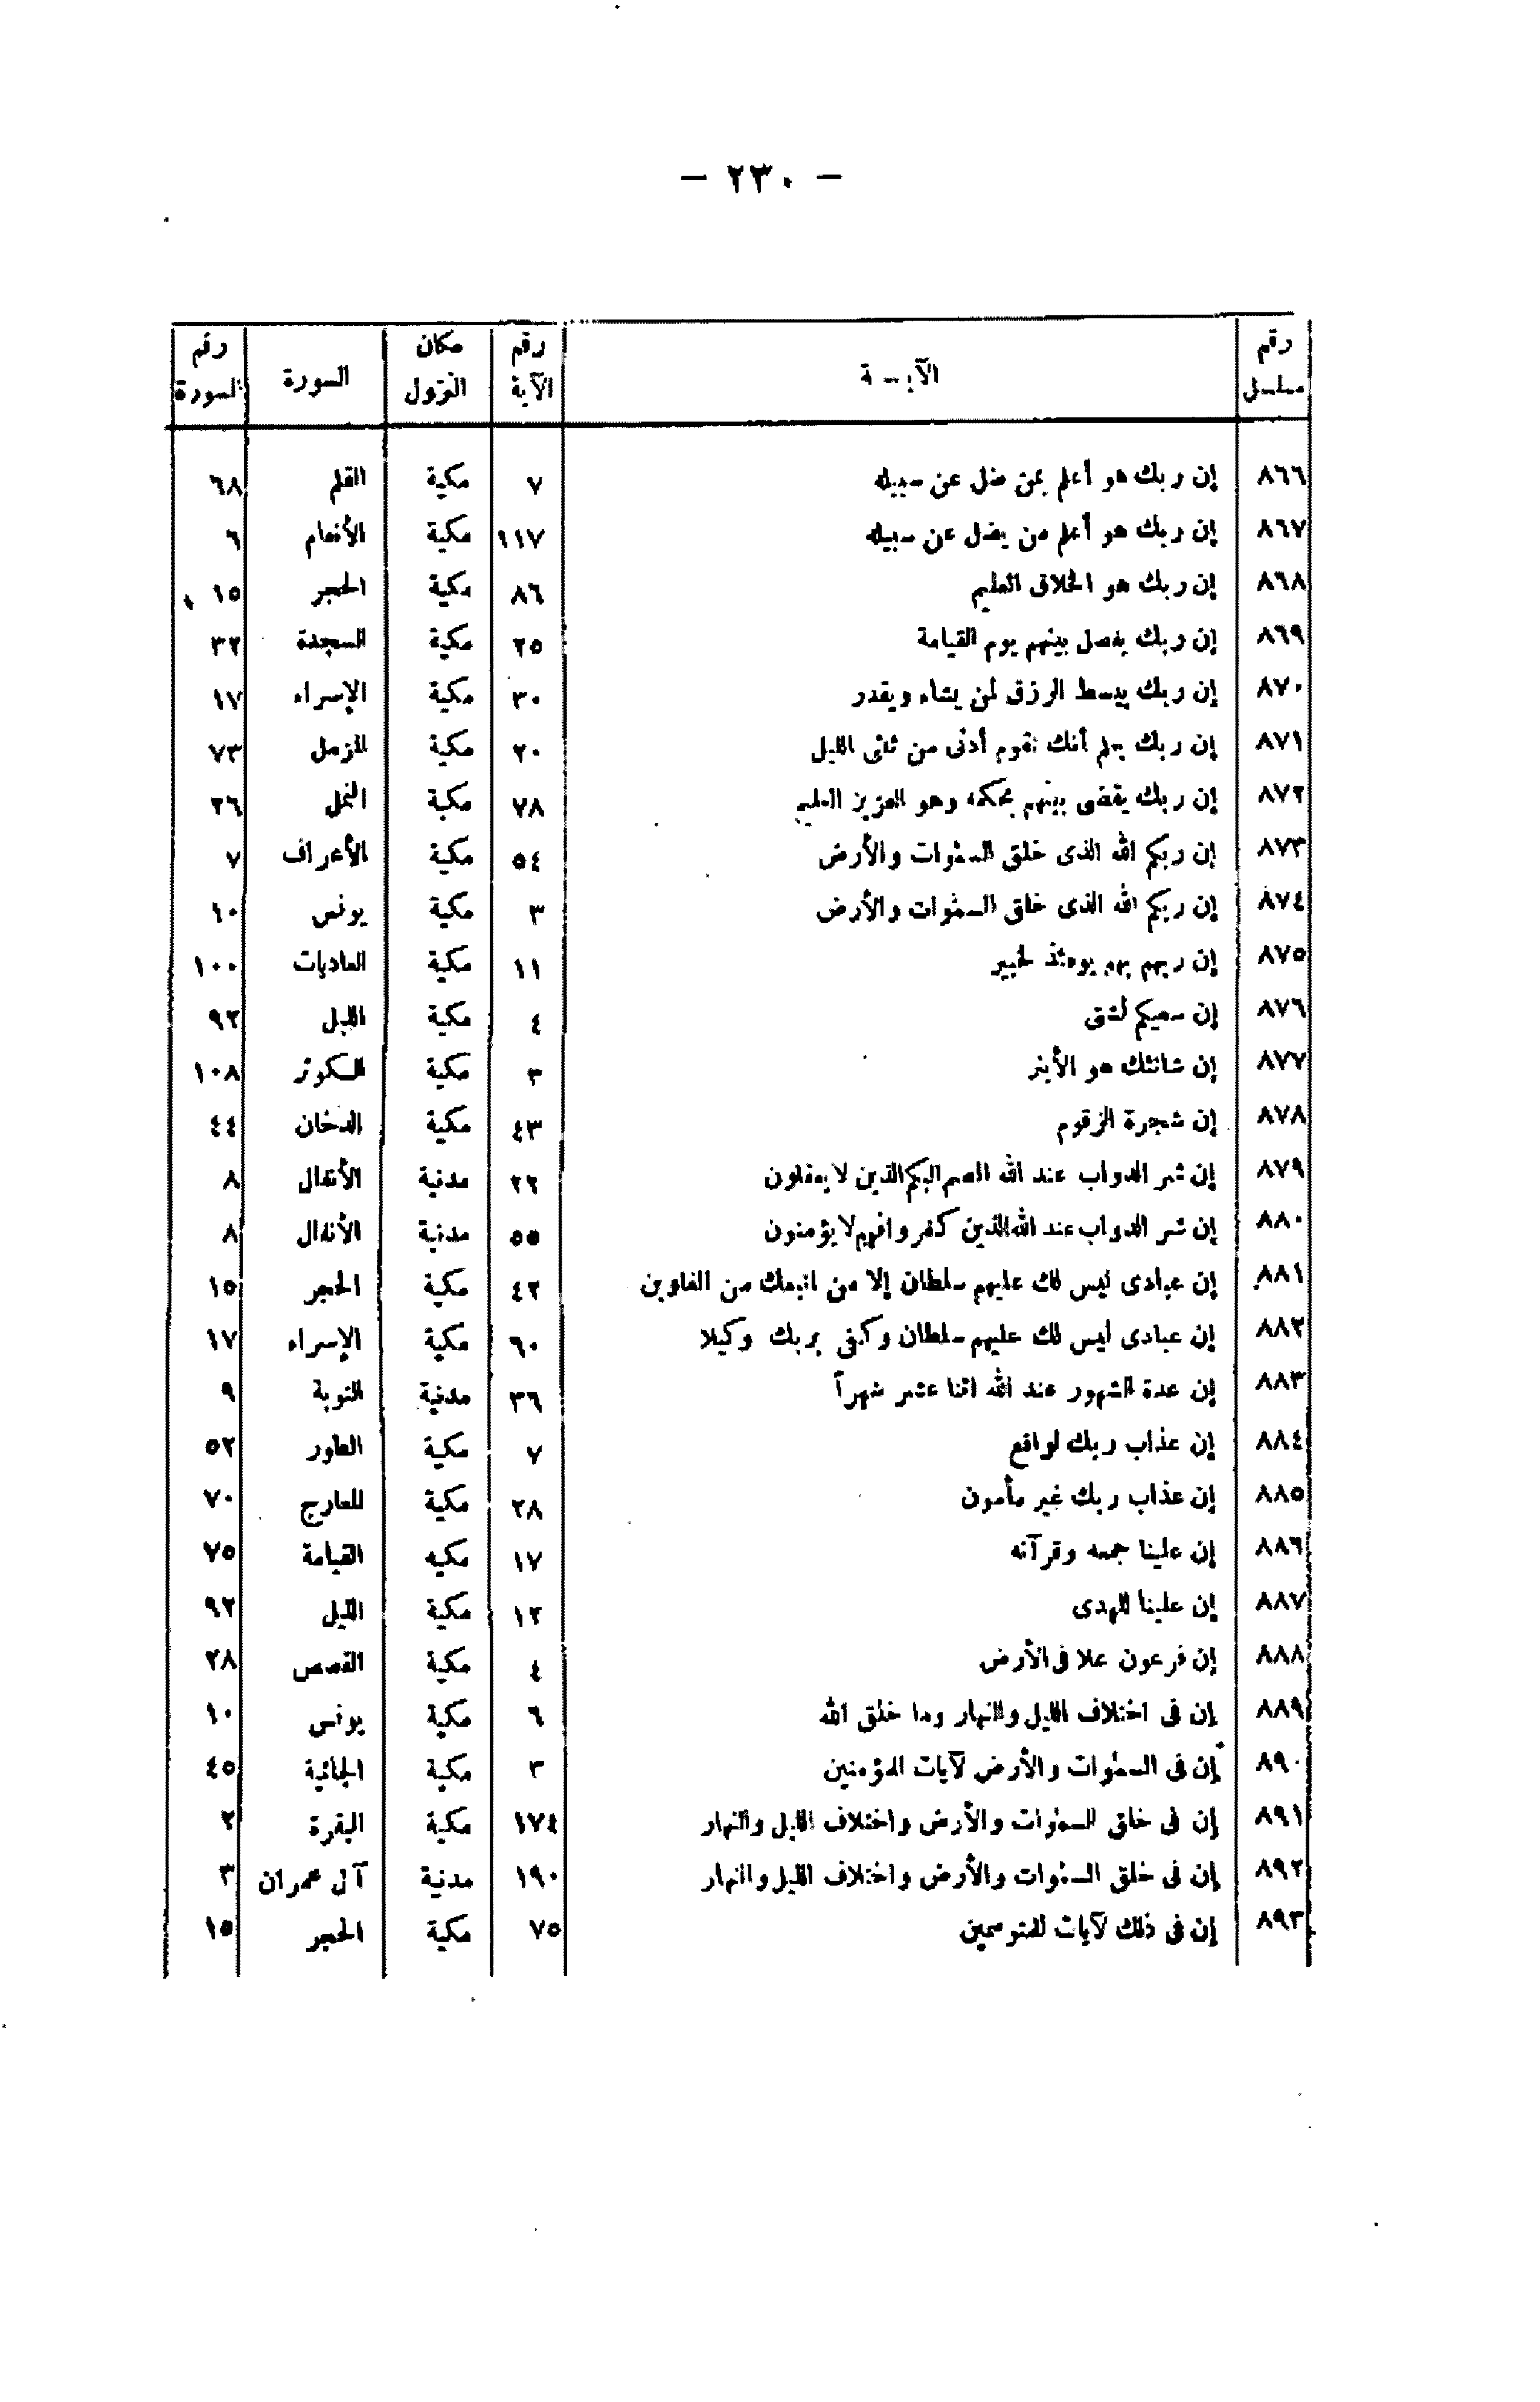 — ٢٣٠ —
رقم مسلسل	الآيـة	رقم الآية	مكان النزول	السورة	رقم السورة
٨٦٦	إن ربك هو أعلم بمن ضل عن سبيله	٧	مكية	القلم	٦٨
٨٦٧	إن ربك هو أعلم من يضل عن سبيله	١١٧	مكية	الأنعام	٦
٨٦٨	إن ربك هو الخلاق العليم	٨٦	مكية	الحجر	١٥
٨٦٩	إن ربك يفصل بينهم يوم القيامة	٢٥	مكية	السجدة	٣٢
٨٧٠	إن ربك يبسط الرزق لمن يشاء ويقدر	٣٠	مكية	الإسراء	١٧
٨٧١	إن ربك يعلم أنك تقوم أدنى من ثلثى الليل	٢٠	مكية	المزمل	٧٣
٨٧٢	إن ربك يقضى بينهم بحكمه وهو العزيز العليم	٧٨	مكية	النمل	٢٦
٨٧٣	إن ربكم الله الذى خلق السموات والأرض	٥٤	مكية	الأعراف	٧
٨٧٤	إن ربكم الله الذى خلق السموات والأرض	٣	مكية	يونس	١٠
٨٧٥	إن ربهم بهم يومئذ لخبير	١١	مكية	العاديات	١٠٠
٨٧٦	إن سعيكم لشتى	٤	مكية	الليل	٩٢
٨٧٧	إن شانئك هو الأبتر	٣	مكية	الكوثر	١٠٨
٨٧٨	إن شجرة الزقوم	٤٣	مكية	الدخان	٤٤
٨٧٩	إن شر الدواب عند الله الصم البكم الذين لا يعقلون	٢٢	مدنية	الأنفال	٨
٨٨٠	إن شر الدواب عند الله الذين كفروا فهم لا يؤمنون	٥٥	مدنية	الأنفال	٨
٨٨١	إن عبادى ليس لك عليهم سلطان إلا من اتبعك من الغاوين	٤٢	مكية	الحجر	١٥
٨٨٢	إن عبادى ليس لك عليهم سلطان وكفى بربك وكيلا	٦٠	مكية	الإسراء	١٧
٨٨٣	إن عدة الشهور عند الله اثنا عشر شهراً	٣٦	مدنية	التوبة	٩
٨٨٤	إن عذاب ربك لواقع	٧	مكية	الطور	٥٢
٨٨٥	إن عذاب ربك غير مأمون	٢٨	مكية	المعارج	٧٠
٨٨٦	إن علينا جمعه وقرآنه	١٧	مكيه	القيامة	٧٥
٨٨٧	إن علينا للهدى	١٢	مكية	الليل	٩٢
٨٨٨	إن فرعون علا فى الأرض	٤	مكية	القصص	٢٨
٨٨٩	إن فى اختلاف الليل والنهار وما خلق الله	٦	مكية	يونس	١٠
٨٩٠	إن فى السموات والأرض لآيات للمؤمنين	٣	مكية	الجاثية	٤٥
٨٩١	إن فى خلق السموات والأرض واختلاف الليل والنهار	١٧٤	مكية	البقرة	٢
٨٩٢	إن فى خلق السموات والأرض واختلاف الليل والنهار	١٩٠	مدنية	آل عمران	٣
٨٩٣	إن فى ذلك لآيات للمتوسمين	٧٥	مكية	الحجر	١٥